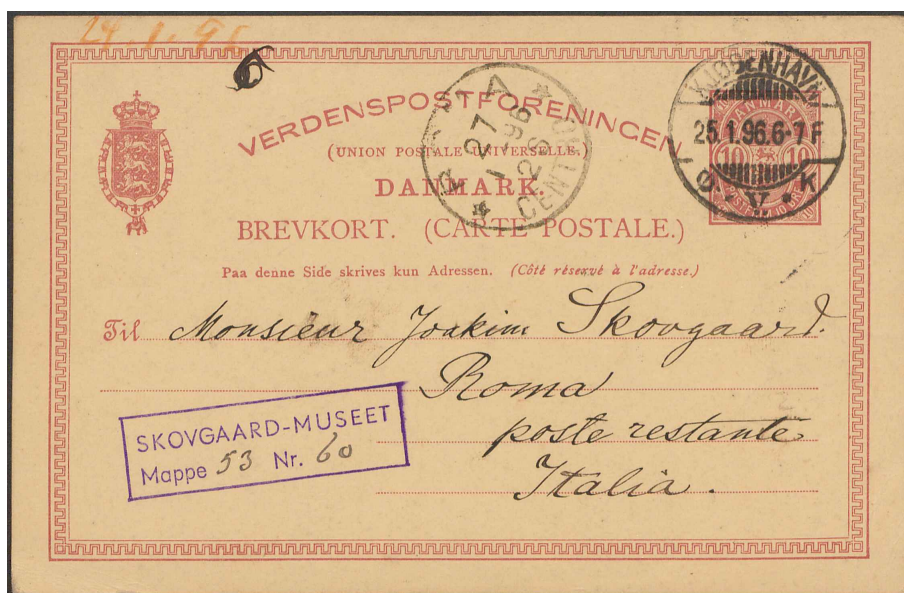 24.1.96
VERDENSPOSTFORENINGEN
(UNION POSTALE UNIVERSELLE.)
DANMARK.
BREVKORT. (CARTE POSTALE.)
Paa denne Side skrives kun Adressen. (Côté réservé à l'adresse.)
KJØBENHAVN
25.1.96.6-7F
Ø.V.K
DANMARK
10 10
27
1 96
CENTR
Til Monsieur Joakim Skovgaard.
Roma
poste restante
Italia.
SKOVGAARD-MUSEET
Mappe 53 Nr. 60